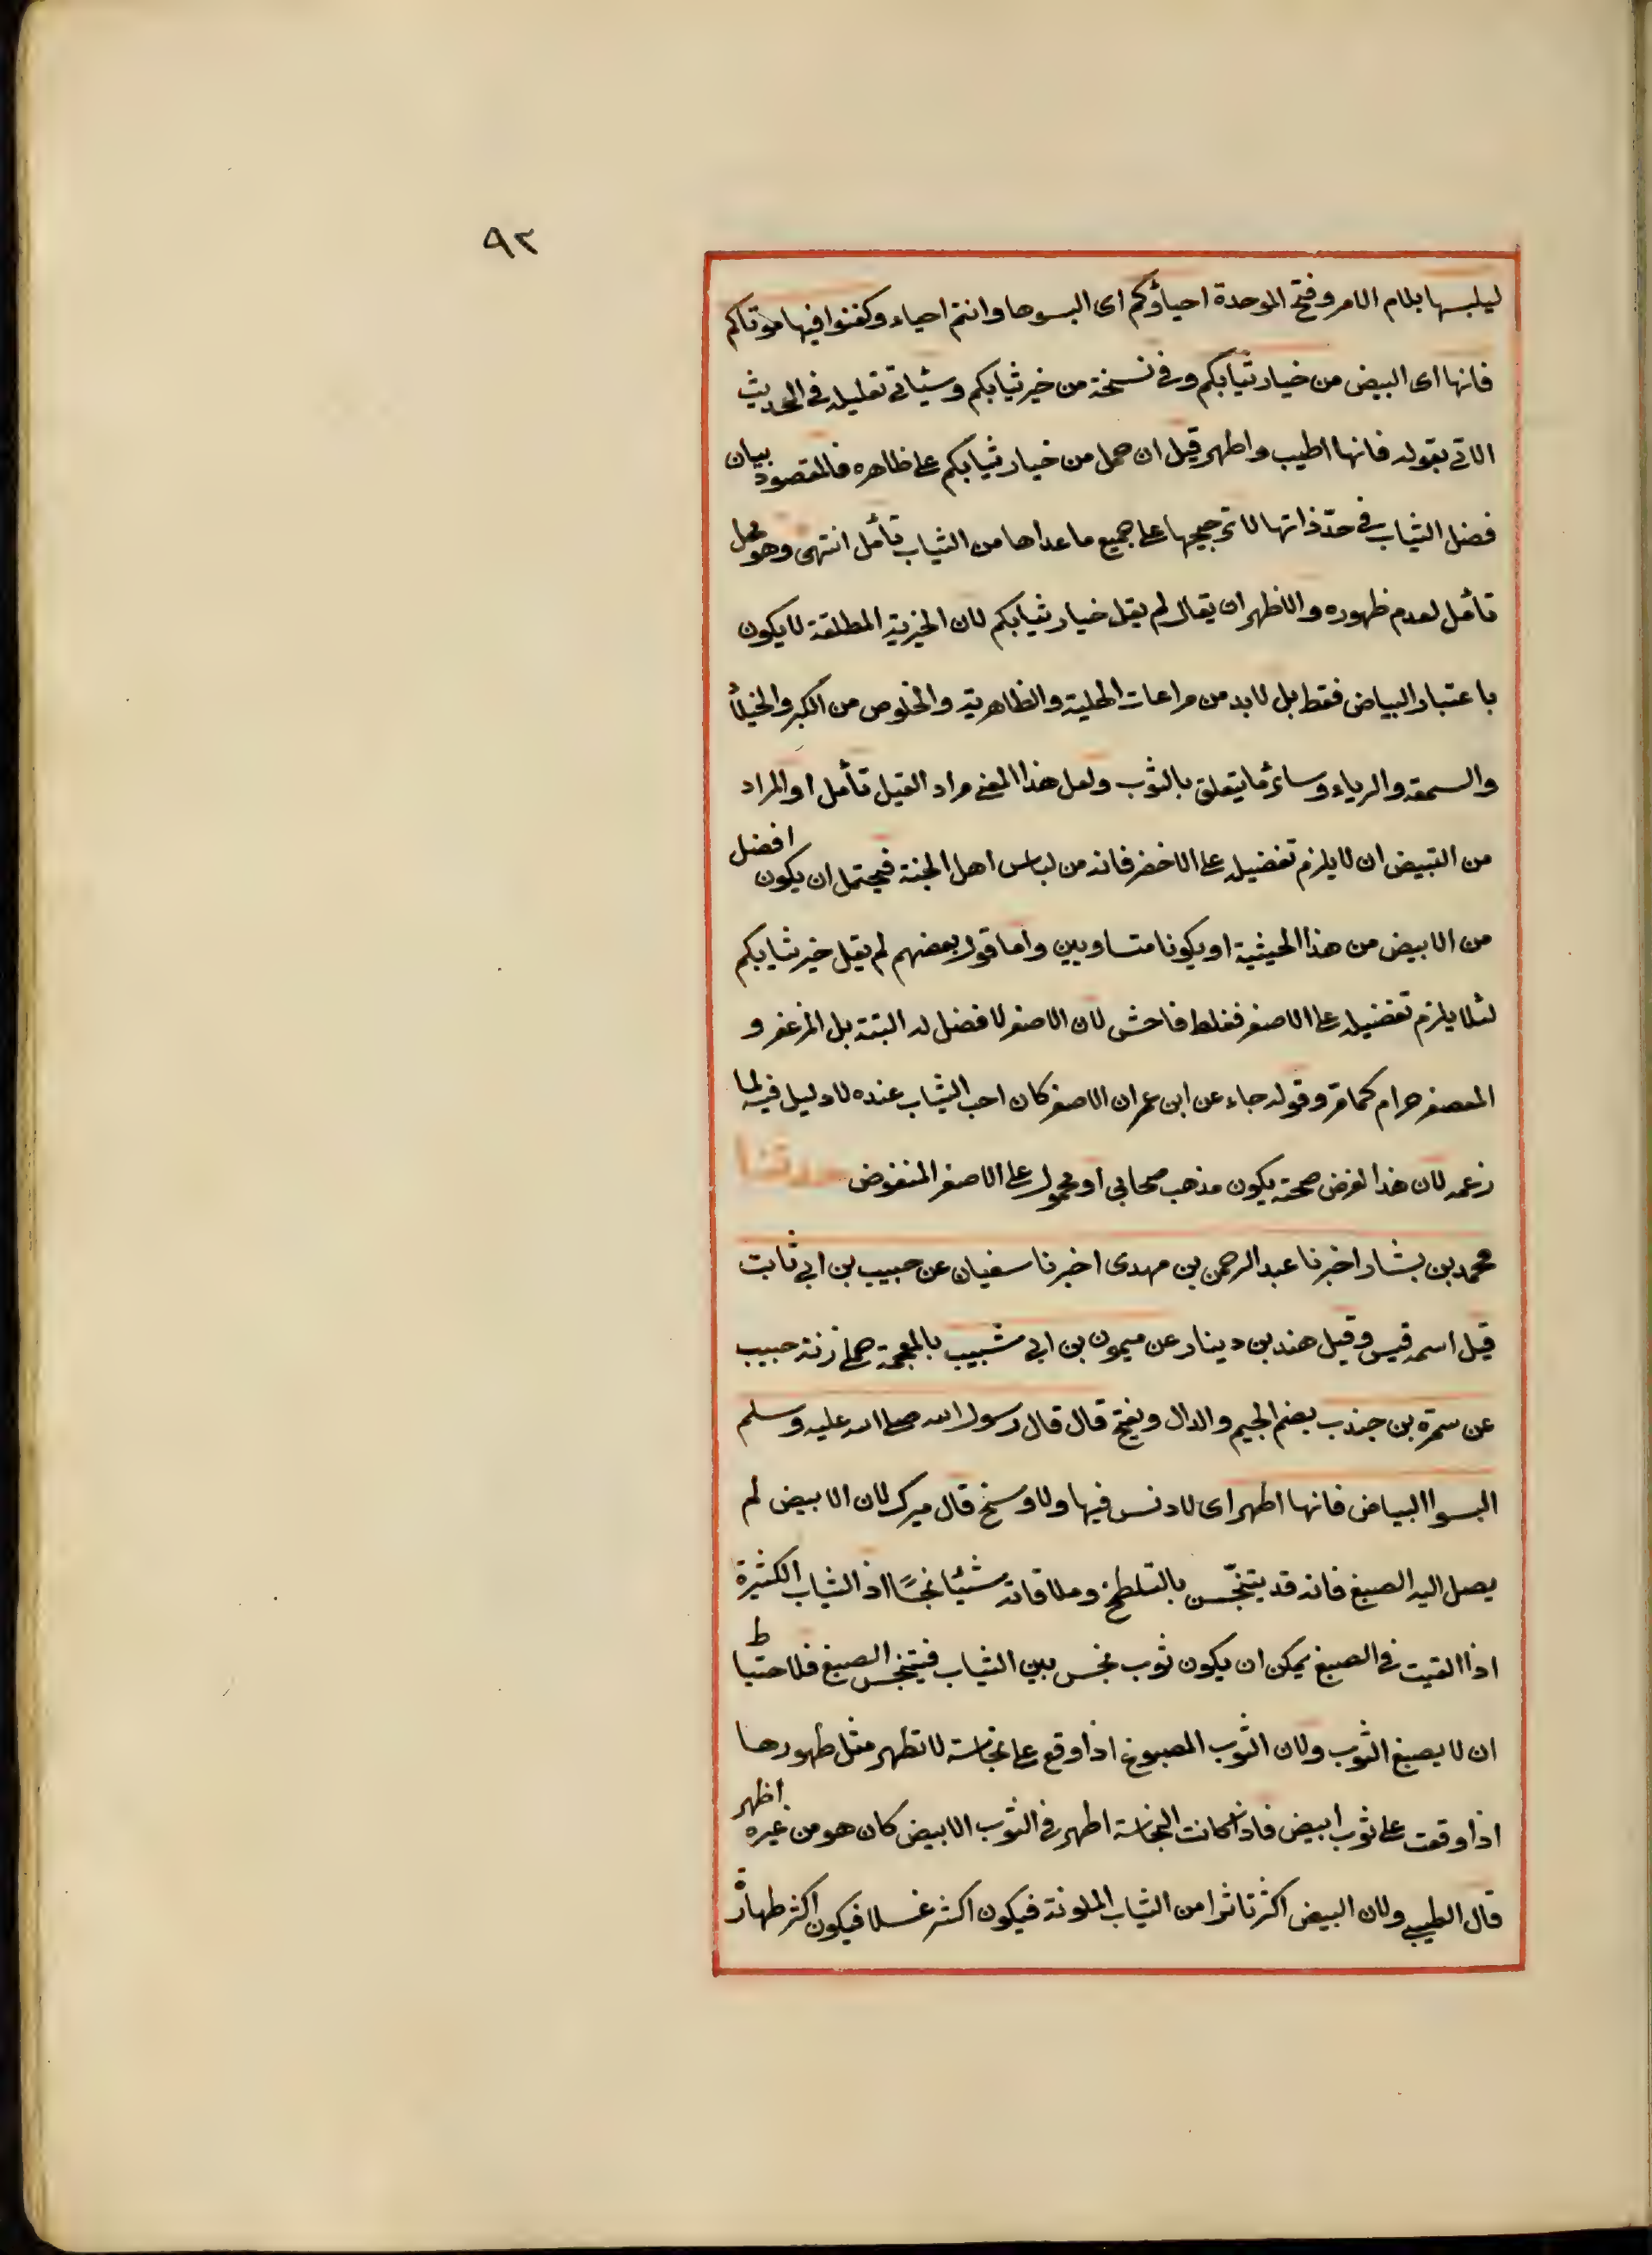 ٩٢
ليلبسها بلام الامر وفتح الموحدة احياؤكم اى البسوها وانتم احياء وكفنوا فيها موتاكم
فانها اى البيض من خيار ثيابكم وفي نسخة من خير ثيابكم وسيأتي تعليله في الحديث
الاتي بقوله فانها اطيب واطهر قيل ان حمل من خيار ثيابكم على ظاهره فالمقصود بيان
فضل الثياب في حدّ ذاتها لا ترجيحها على جميع ما عداها من الثياب تأمل انتهى وهو محل
تأمل لعدم ظهوره والاظهر ان يقال لم يقل خيار ثيابكم لان الخيرية المطلقة لا يكون
باعتبار البياض فقط بل لا بد من مراعات الحلية والظاهرية والخلوص من الكبر والخيلأ
والسمعة والرياء وسائر ما يتعلق بالثوب ولعل هذا المعنى مراد القيل تأمل او المراد
من التبيض ان لا يلزم تفضيله على الاخضر فانه من لباس اهل الجنة فيحتمل ان يكون افضل
من الابيض من هذا الحيثية او يكونا متساويين واما قول بعضهم لم يقل خير ثيابكم
لئلا يلزم تفضيله على الاصفر فغلط فاحش لان الاصفر لا فضل له البتة بل المزعفر و
المعصفر حرام كما مر وقوله جاء عن ابن عمر ان الاصفر كان احب الثياب عنده لا دليل فيه لما
زعمه لان هذا لفرض صحته يكون مذهب صحابي او محمول على الاصفر المنفوض حدثنا
محمد بن بشار اخبرنا عبد الرحمن بن مهدى اخبرنا سفيان عن حبيب بن ابي ثابت
قيل اسمه قيس وقيل هند بن دينار عن ميمون بن ابي شبيب بالمعجمة على زنة حبيب
عن سمرة بن جندب بضم الجيم والدال ويفتح قال قال رسول الله صلى الله عليه وسلم
البسوا البياض فانها اطهر اى لا دنس فيها ولا وسخ قال ميرك لان الابيض لم
يصل اليه الصبغ فانه قد يتنجّس بالتلطخ وملاقاته شيئا نجسًا اذ الثياب الكثيرة
اذا القيت في الصبغ يمكن ان يكون ثوب نجس بين الثياب فيتنجس الصبغ فلاحتياط
ان لا يصبغ الثوب ولان الثوب المصبوغ اذا وقع على نجاسة لا تظهر مثل ظهورها
اذا وقعت على ثوب ابيض فاذا كانت النجاسة اظهر في الثوب الابيض كان هو من غيره اظهر
قال الطيبي ولان البيض اكثر تاثرا من الثياب الملونة فيكون اكثر غسلا فيكون اكثر طهارة